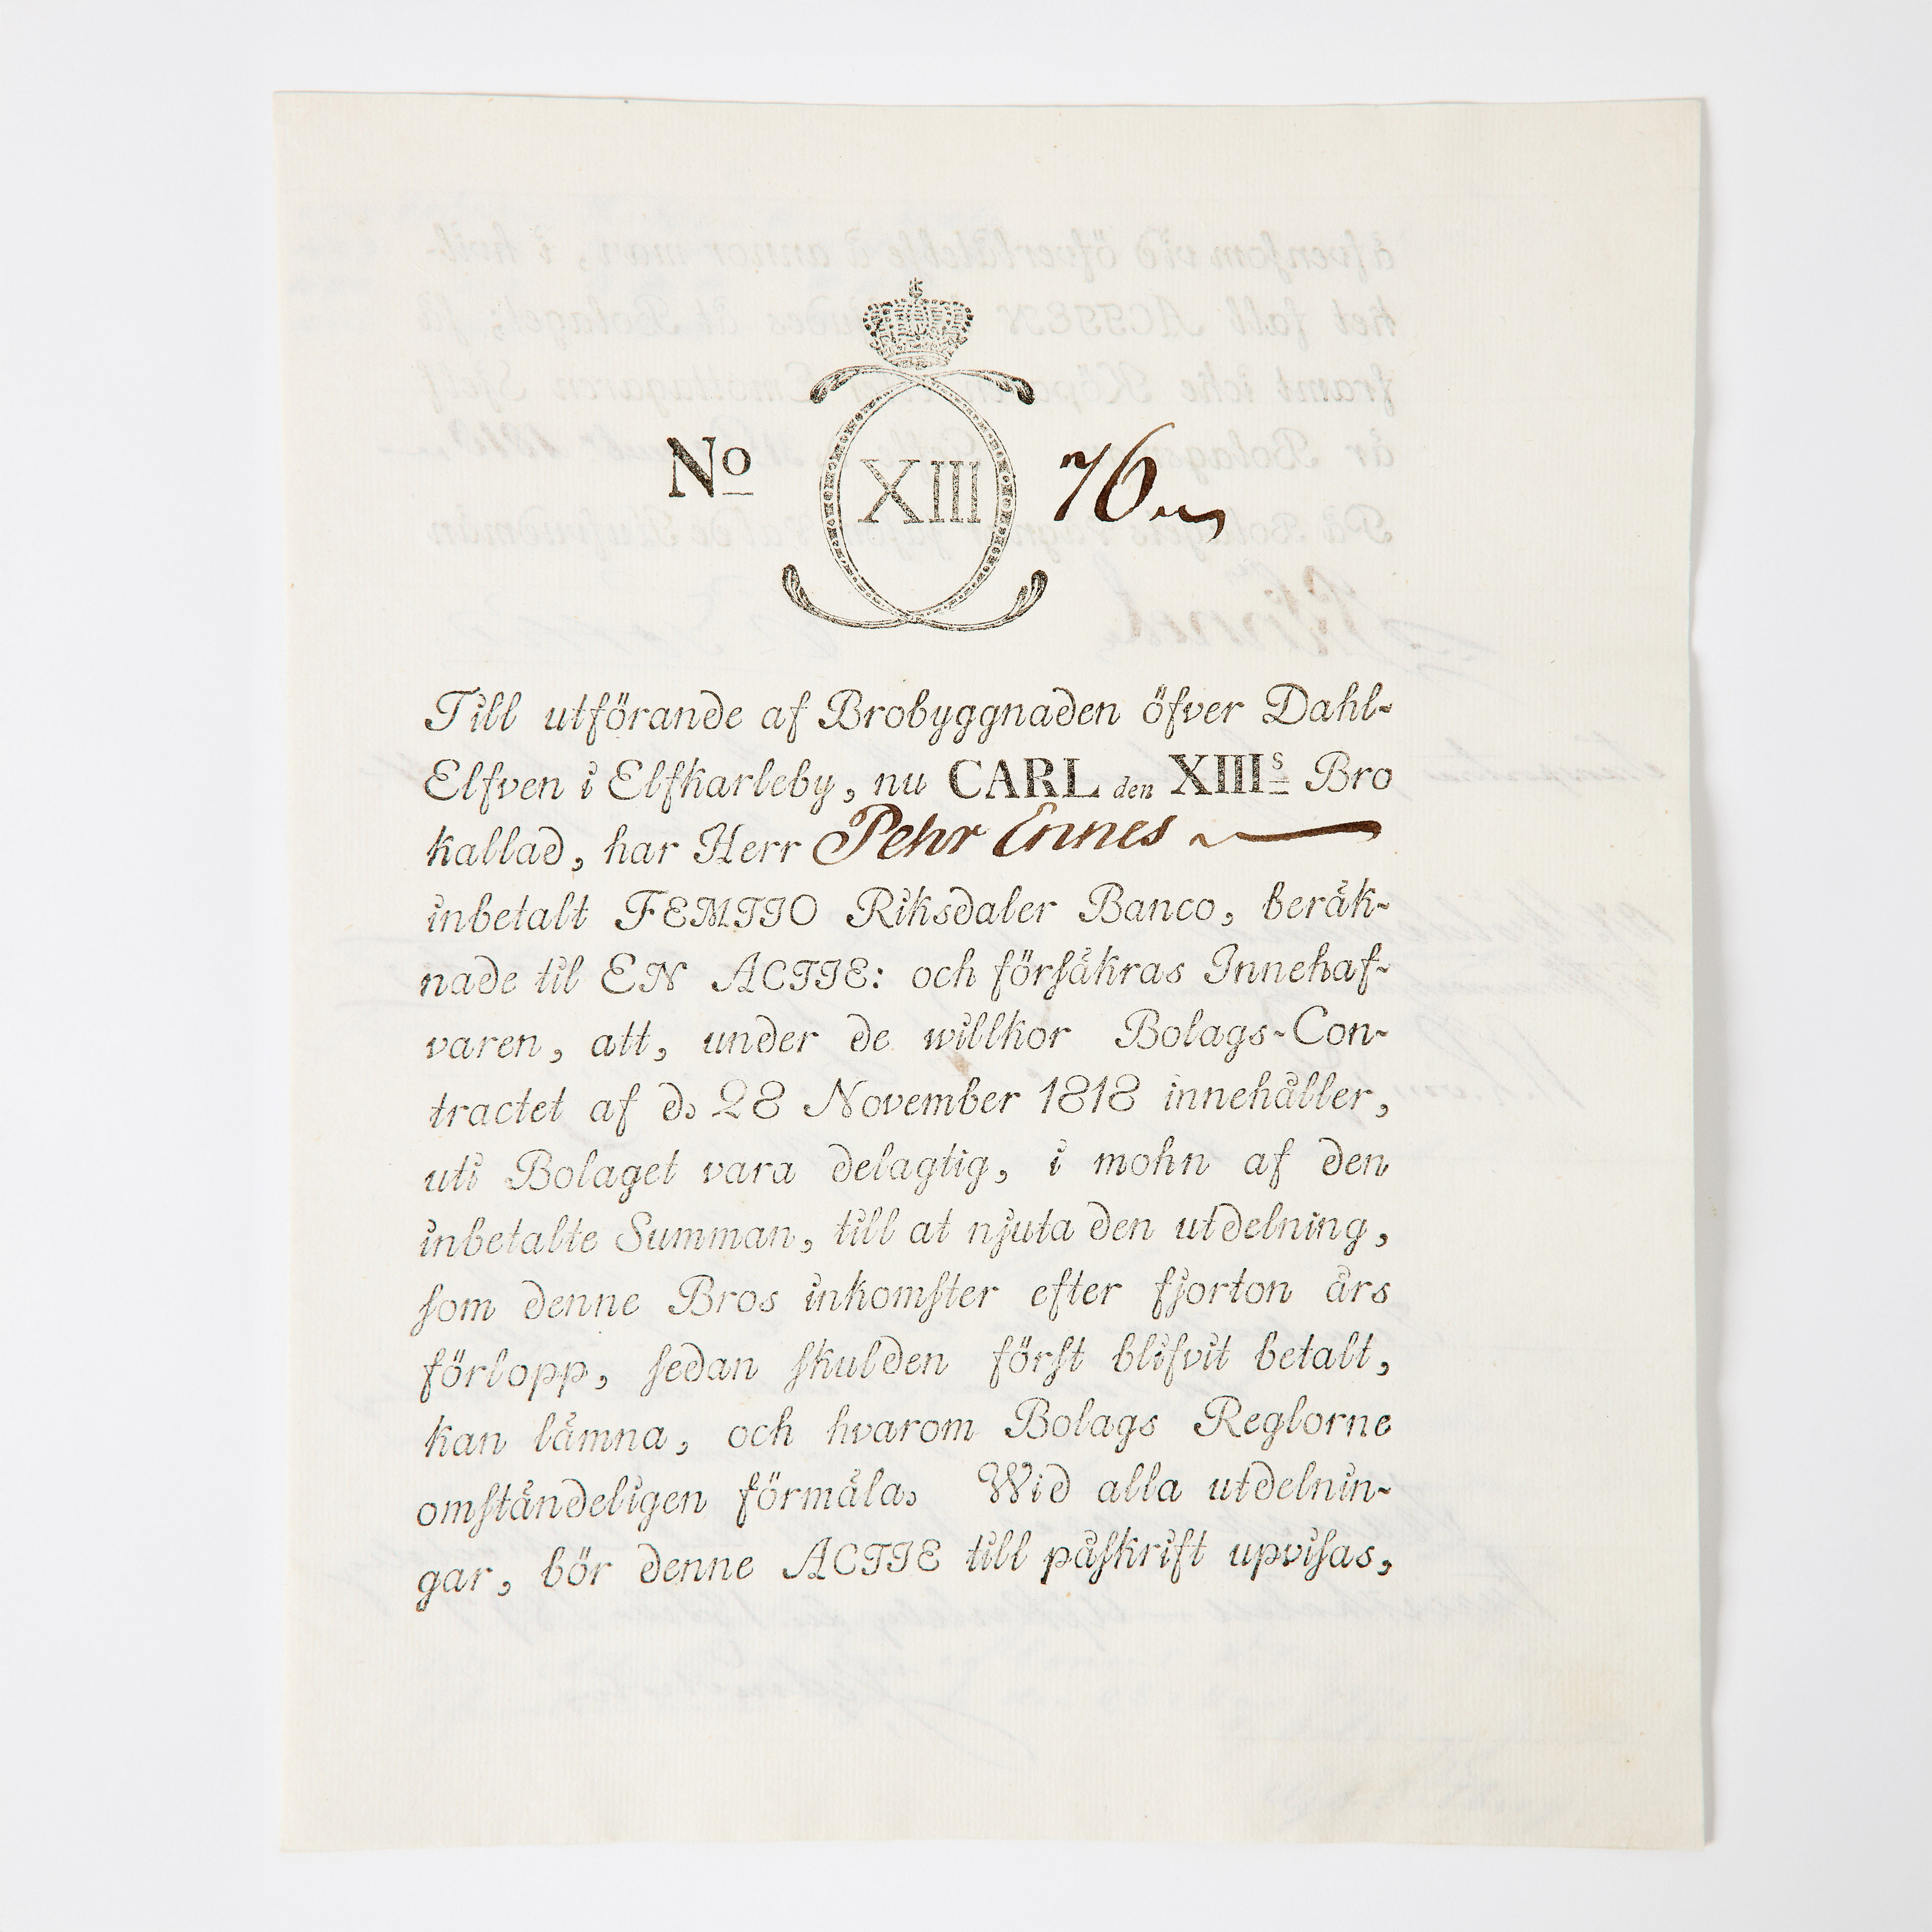 No XIII 76
Till utförande af Brobyggnaden öfver Dahl-
Elfven i Elfkarleby, nu CARL den XIIIs Bro
kallad, har Herr Pehr Ennes
inbetalt FEMTIO Riksdaler Banco, beräk-
nade til EN ACTIE: och förſäkras Innehaf-
varen, att, under de willkor Bolags-Con-
tractet af d. 28 November 1818 innehåller,
uti Bolaget vara delagtig, i mohn af den
inbetalte Summan, till at njuta den utdelning,
ſom denne Bros inkomſter efter fjorton års
förlopp, ſedan ſkulden förſt blifvit betalt,
kan lämna, och hvarom Bolags Reglorne
omſtändeligen förmäla. Wid alla utdelnin-
gar, bör denne ACTIE till påſkrift upviſas,